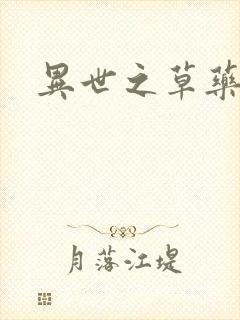 異世之草藥
月落江堤